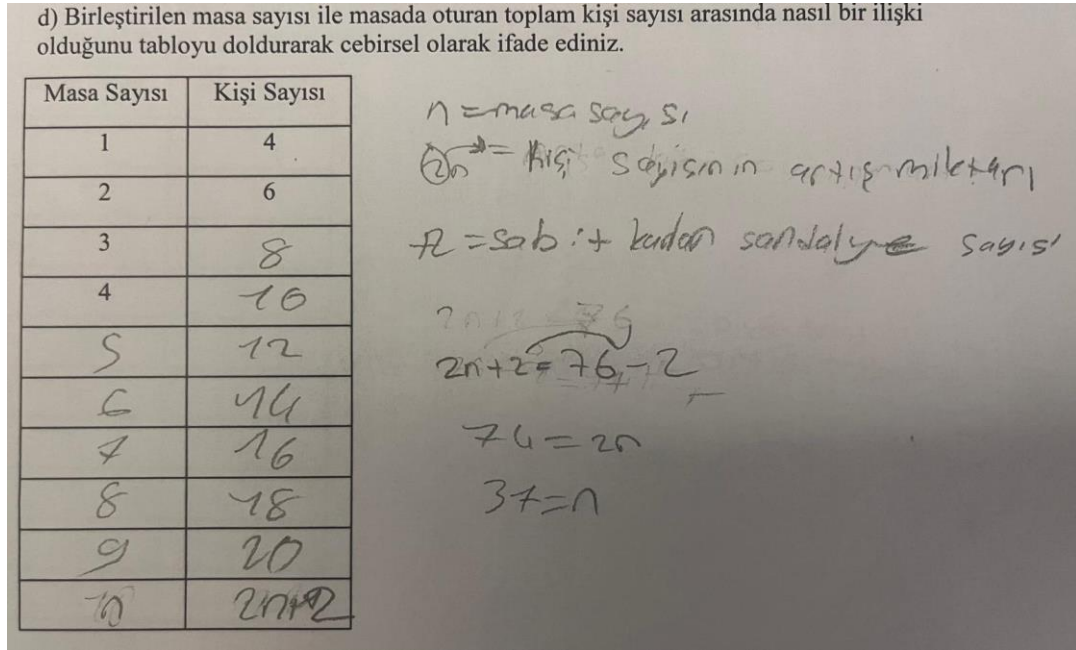 d) Birleştirilen masa sayısı ile masada oturan toplam kişi sayısı arasında nasıl bir ilişki
olduğunu tabloyu doldurarak cebirsel olarak ifade ediniz.
Masa Sayısı Kişi Sayısı
1 4
2 6
3 8
4 10
5 12
6 14
7 16
8 18
9 20
n 2n+2
n = masa sayısı
2n = kişi sayısının artış miktarı
+2 = sabit kadan sandalye sayısı
2n+2 = 76 - 2
74 = 2n
37 = n